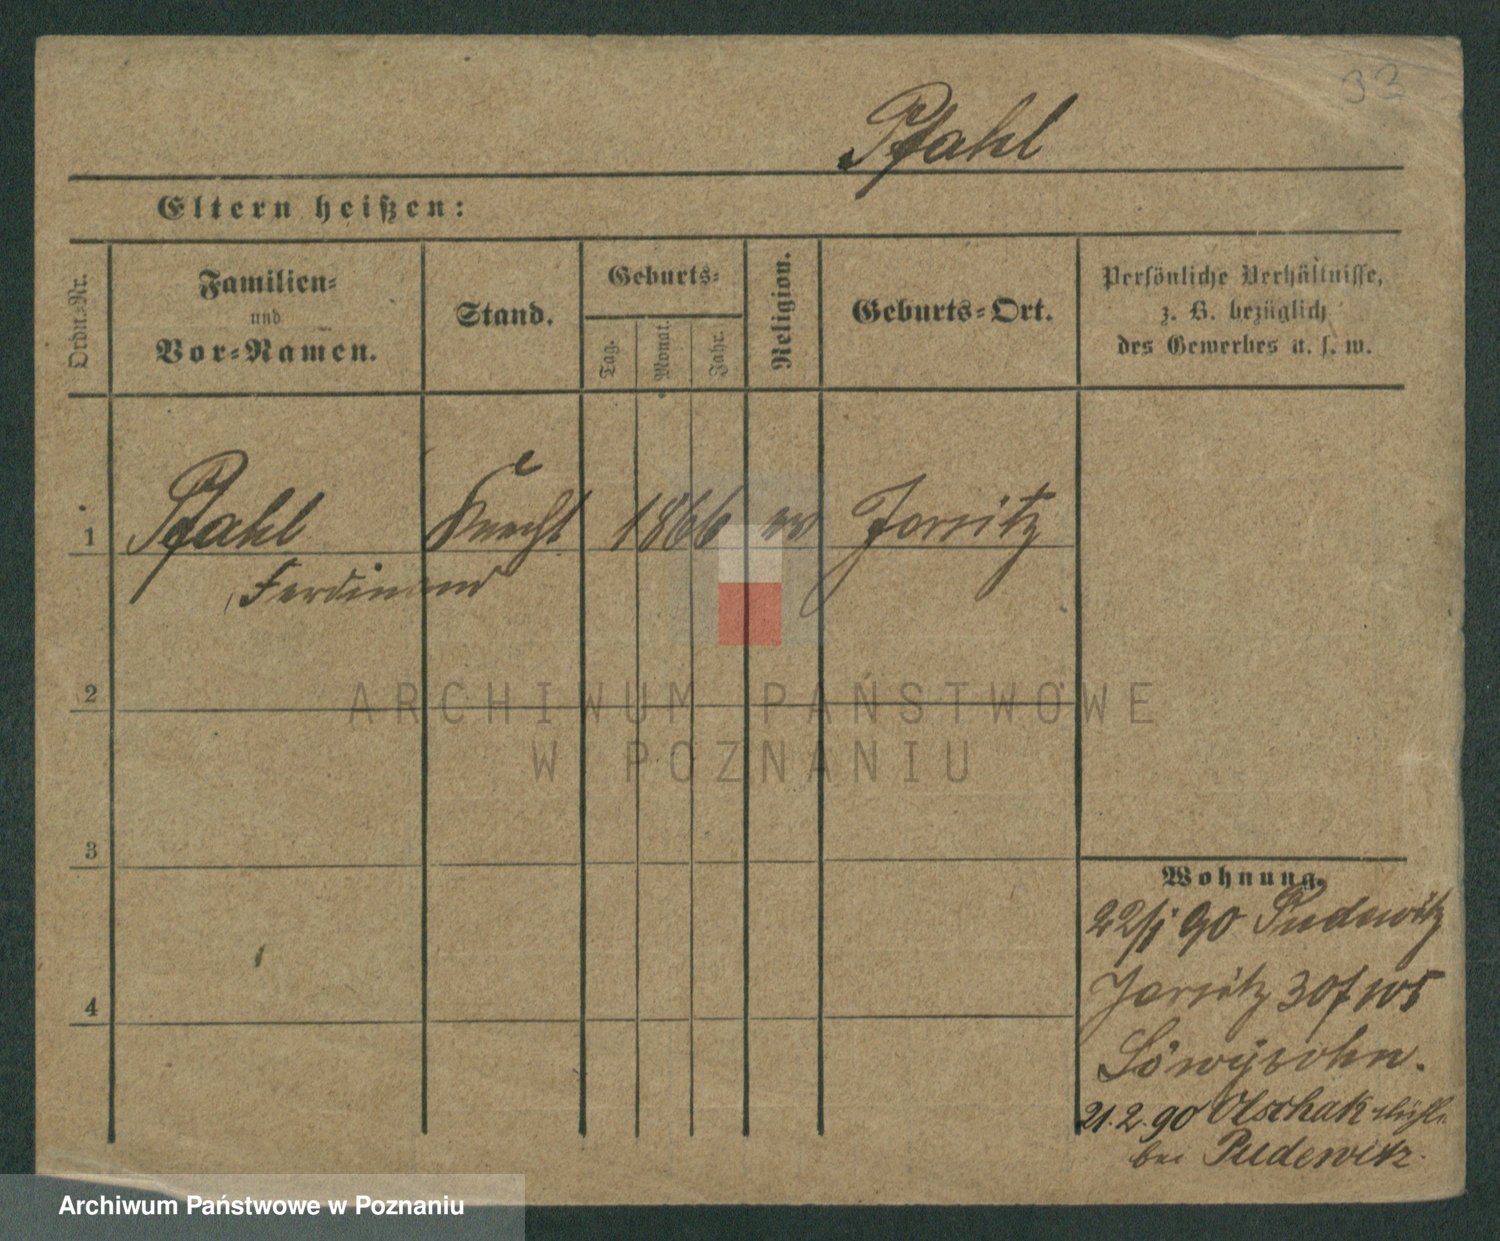 33
Pfahl
Eltern heißen:
Ordn.-Nr.
Familien-
und
Vor-Namen.
Stand.
Geburts-
Tag.
Monat.
Jahr.
Religion.
Geburts-Ort.
Persönliche Verhältnisse,
z. B. bezüglich
des Gewerbes u. s. w.
1 Pfahl Knecht 1866 ev
Ferdinand
2
3
4
Wohnung.
22/1 90 Pudewitz
30
21.2.90
bei Pudewitz.
ARCHIWUM PAŃSTWOWE
W POZNANIU
Archiwum Państwowe w Poznaniu